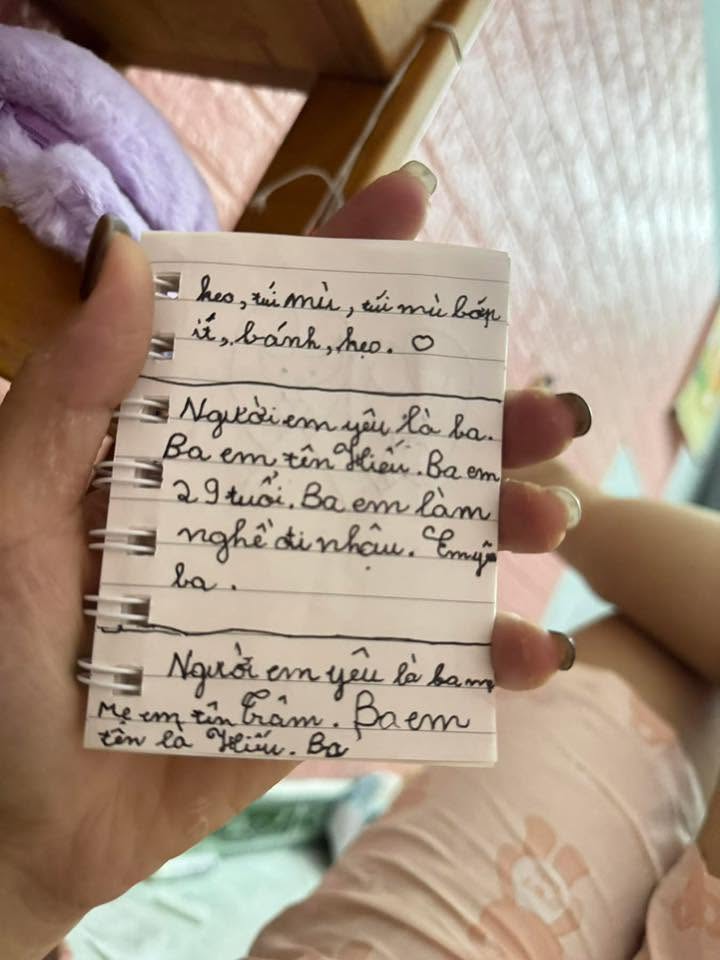 heo, túi mù, túi mù bóp
ít, bánh, hẹo. ♡
Người em yêu là ba.
Ba em tên Hiếu. Ba em
29 tuổi. Ba em làm
nghề đi nhậu. Em yê
ba.
Người em yêu là ba m
Mẹ em tên Trâm. Ba em
tên là Hiếu. Ba